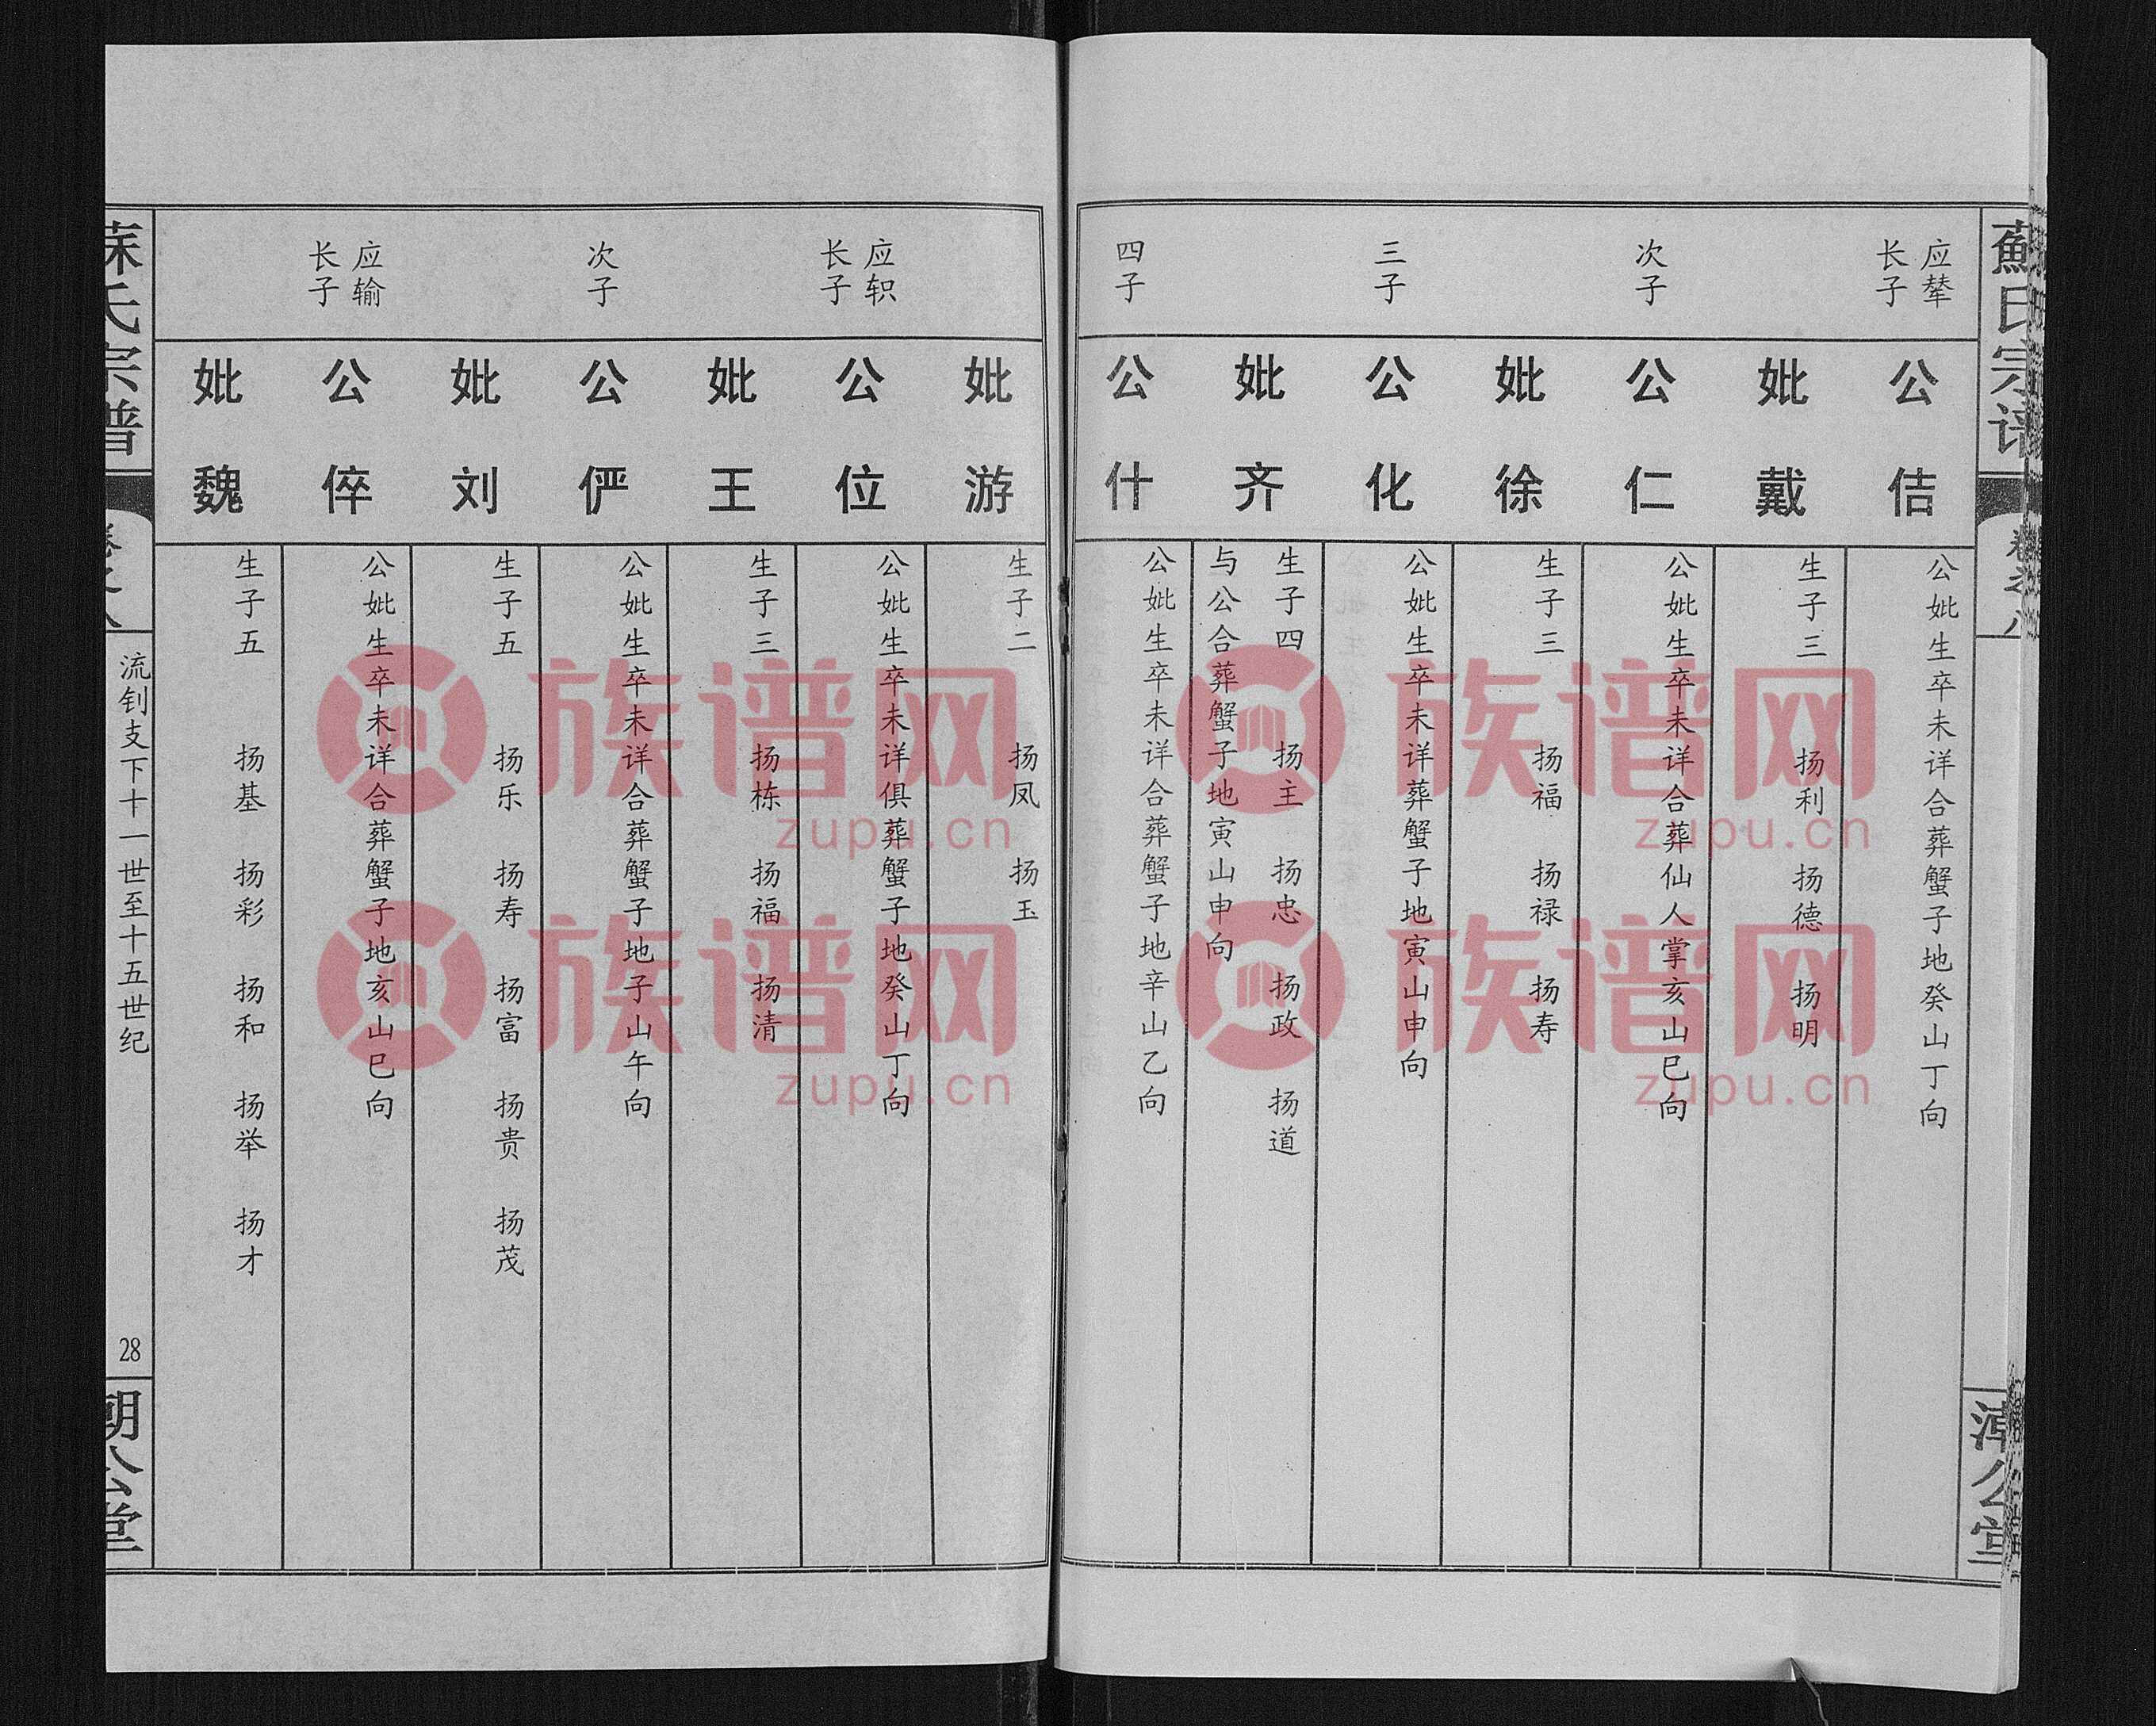 蘇氏宗谱
卷之八
应辇
长子
公佶
公妣生卒未详合葬蟹子地癸山丁向
妣戴
生子三 扬利 扬德 扬明
次子
公仁
公妣生卒未详合葬仙人掌亥山巳向
妣徐
生子三 扬福 扬禄 扬寿
三子
公化
公妣生卒未详葬蟹子地寅山申向
妣齐
生子四 扬主 扬忠 扬政 扬道
与公合葬蟹子地寅山申向
四子
公什
公妣生卒未详合葬蟹子地辛山乙向
公堂
妣游
生子二 扬凤 扬玉
应轵
长子
公位
公妣生卒未详俱葬蟹子地癸山丁向
妣王
生子三 扬栋 扬福 扬清
次子
公俨
公妣生卒未详合葬蟹子地子山午向
妣刘
生子五 扬乐 扬寿 扬富 扬贵 扬茂
应输
长子
公倅
公妣生卒未详合葬蟹子地亥山巳向
妣魏
生子五 扬基 扬彩 扬和 扬举 扬才
氏宗谱
卷之八
流钊支下十一世至十五世纪
28
公堂
族谱网
zupu.cn
族谱网
zupu.cn
族谱网
zupu.cn
族谱网
zupu.cn